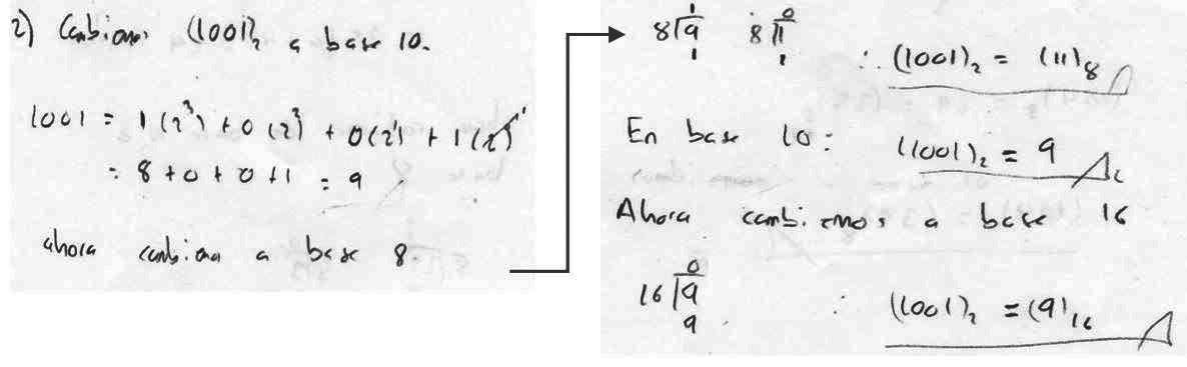 2) Cambiamos (1001)₂ a base 10.
1001 = 1(2³) + 0(2²) + 0(2¹) + 1(2)
= 8 + 0 + 0 + 1 = 9
ahora cambiamos a base 8.
8√9 1 1 8√1 0 1
∴ (1001)₂ = (11)₈
En base 10: (1001)₂ = 9
Ahora cambiemos a base 16
16√9 0 9 ∴ (1001)₂ = (9)₁₆